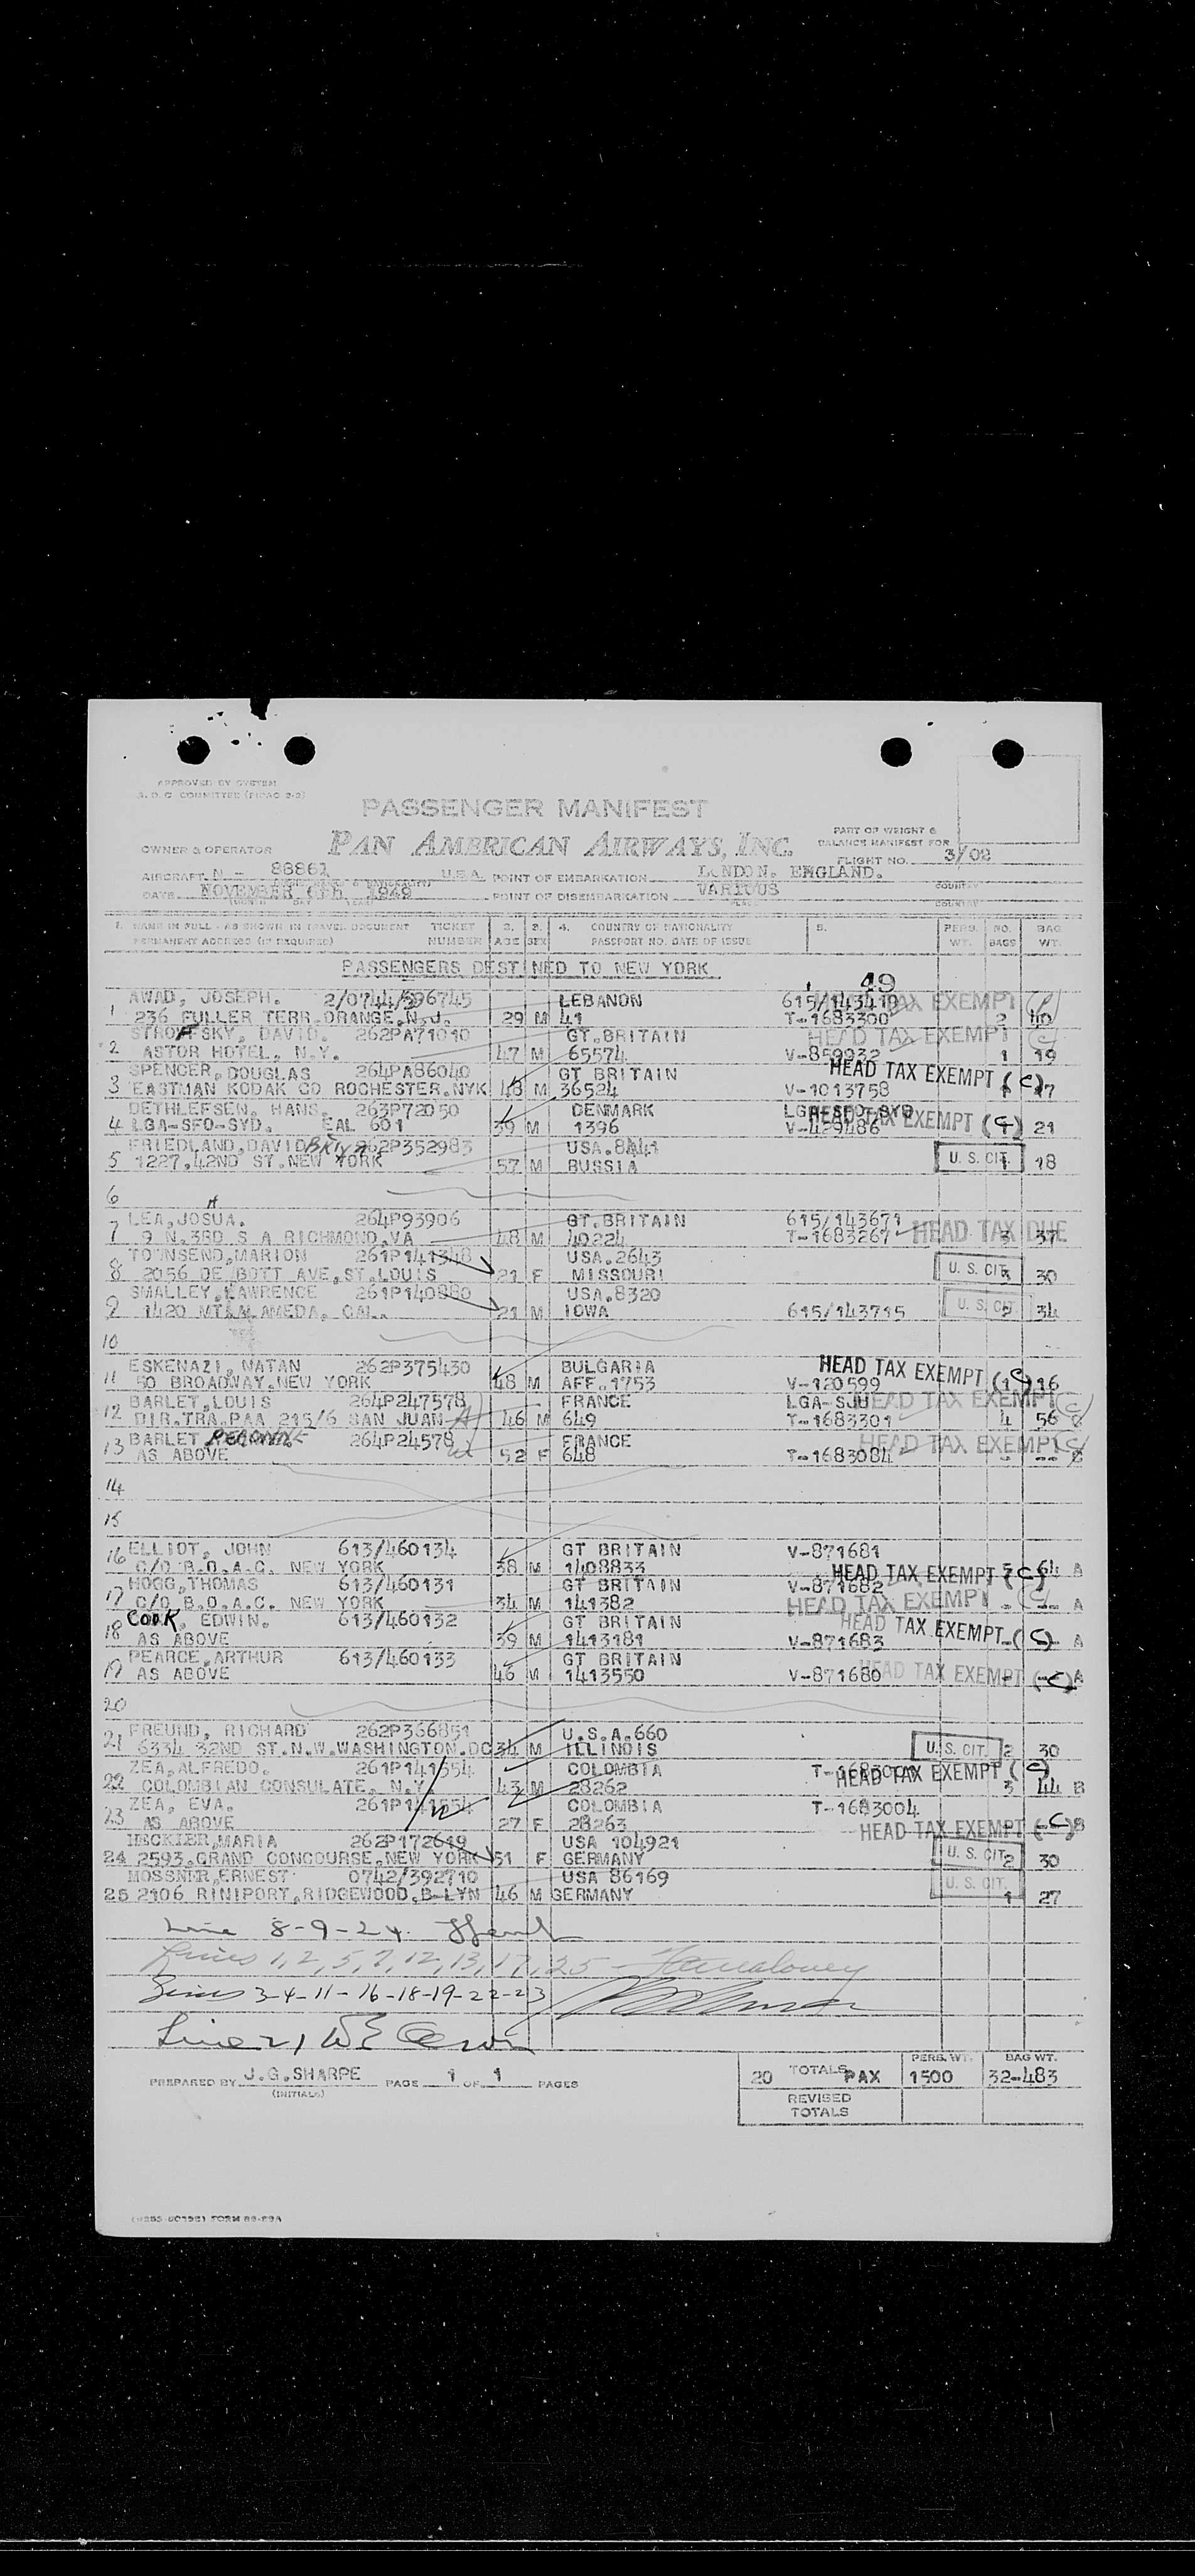 APPROVED BY SYSTEM
PASSENGER MANIFEST
PAN AMERICAN AIRWAYS, INC.
PART OF WEIGHT &
BALANCE MANIFEST FOR
FLIGHT NO. 3/02
OWNER & OPERATOR
AIRCRAFT N - 88861 U.S.A. POINT OF EMBARKATION LONDON. ENGLAND.
DATE NOVEMBER 1949 POINT OF DISEMBARKATION VARIOUS
COUNTRY
PLACE COUNTRY
1. NAME IN FULL - AS SHOWN IN TRAVEL DOCUMENT TICKET 2. 3. 4. COUNTRY OF NATIONALITY 5. PERS. NO. BAG
PERMANENT ADDRESS (IF REQUIRED) NUMBER AGE SEX PASSPORT NO. DATE OF ISSUE WT. BAGS WT.
PASSENGERS DESTINED TO NEW YORK
49
AWAD, JOSEPH. LEBANON 615/143410 HEAD TAX EXEMPT
1 236 FULLER TERR.ORANGE.N.J. 29 M 41 T-1683300 2 40
SKY, DAVID. 262PA71010 GT.BRITAIN HEAD TAX EXEMPT
2 ASTOR HOTEL, N.Y. 47 M 65574 V-859932 1 19
SPENCER,DOUGLAS 264PA86040 GT BRITAIN HEAD TAX EXEMPT (C)
3 EASTMAN KODAK CO ROCHESTER.NYK 48 M 36524 V-1013758 17
DETHLEFSEN, HANS. 263P72050 DENMARK LGA-SFO-SYD
4 LGA-SFO-SYD. EAL 601 39 M 1396 V-429486 HEAD TAX EXEMPT (C) 21
FRIEDLAND,DAVID 262P352983 USA.8241
5 1227,42ND ST.NEW YORK 57 M RUSSIA U. S. CIT. 18
6
LEA,JOSUA. H 264P93906 GT.BRITAIN 615/143671
7 9 N.3RD S A RICHMOND,VA 48 M 40224 T-1683267 HEAD TAX DUE 3 37
TOWNSEND,MARION 261P141348 USA.2643
8 2056 DE BOTT AVE,ST.LOUIS 21 F MISSOURI U. S. CIT. 30
SMALLEY,LAWRENCE 261P140880 USA.8320
9 21 M IOWA 615/143715 U. S. CIT. 34
10
ESKENAZI, NATAN 262P375430 BULGARIA HEAD TAX EXEMPT (C)
11 50 BROADWAY.NEW YORK 48 M AFF.1753 V-120599 1 16
BARLET,LOUIS 264P247578 FRANCE LGA-SJU HEAD TAX EXEMPT (C)
12 DIR.TRA.PAA 215/6 SAN JUAN 46 M 649 T-1683301 4 56
BARLET 264P24578 FRANCE HEAD TAX EXEMPT
13 AS ABOVE 52 F 648 T-1683084
14
15
ELLIOT, JOHN 613/460134 GT BRITAIN V-871681
16 C/O B.O.A.C. NEW YORK 38 M 1408833 HEAD TAX EXEMPT (C) 64 A
HOGG,THOMAS 613/460131 GT BRITAIN V-871682
17 C/O B.O.A.C. NEW YORK 34 M 141382 HEAD TAX EXEMPT A
COOK, EDWIN. 613/460132 GT BRITAIN HEAD TAX EXEMPT (C)
18 AS ABOVE 39 M 1413181 V-871683 A
PEARCE,ARTHUR 613/460133 GT BRITAIN
19 AS ABOVE 46 M 1413550 V-871680 HEAD TAX EXEMPT (C) A
20
FREUND, RICHARD 262P366851 U.S.A.660
21 6334 32ND ST.N.W.WASHINGTON.DC 34 M ILLINOIS U. S. CIT. 2 30
ZEA,ALFREDO. 261P141554 COLOMBIA HEAD TAX EXEMPT (C)
22 COLOMBIAN CONSULATE, N.Y. 43 M 28262 3 44 B
ZEA, EVA. 261P141554 COLOMBIA T-1683004
23 AS ABOVE 27 F 28263 HEAD TAX EXEMPT (C) B
MARIA 262P172619 USA 104921
24 2593.GRAND CONCOURSE,NEW YORK 51 F GERMANY U. S. CIT. 2 30
MOSSNER,ERNEST 0742/392710 USA 86169
25 2106 RINIPORT,RIDGEWOOD,B-LYN 46 M GERMANY U. S. CIT. 1 27
Line 8-9-24.
Lines 1,2,5,7,12,13,17,25 -
Lines 3-4-11-16-18-19-22-23
Line 21
PREPARED BY J.G.SHARPE PAGE 1 OF 1 PAGES
(INITIALS)
PERS. WT. BAG WT.
20 TOTALS PAX 1500 32-483
REVISED
TOTALS